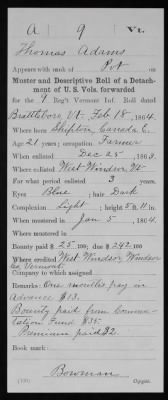 A 9 Vt.
Thomas Adams
Appears with rank of Pvt on
Muster and Descriptive Roll of a Detach-
ment of U. S. Vols. forwarded
for the 9 Reg't Vermont Inf. Roll dated
Brattleboro, Vt. Feb 18, 1864.
Where born Shipton, Canada E.
Age 21 years; occupation Farmer
When enlisted Dec 25, 1863.
Where enlisted West Windsor Vt.
For what period enlisted 3 years.
Eyes Blue; hair Dark
Complexion Light; height 5 ft. 11 in.
When mustered in Jan 5, 1864.
Where mustered in
Bounty paid $ 25 100; due $ 242 100
Where credited West Windsor Windsor
Co, Vermont
Company to which assigned
Remarks: One months pay in
Advance $13.
Bounty paid from Commu-
tation Fund $35.
Premium paid $2.
Book mark:
Bowman
Copyist.